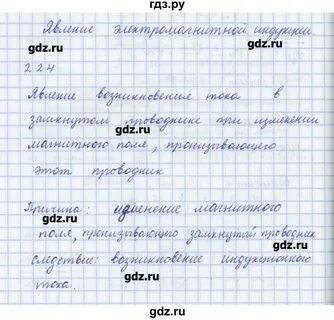 gdz.ru
Явление электромагнитной индукции
gdz.ru gdz.ru
224
Явление возникновения тока в
gdz.ru gdz.ru
замкнутом проводнике при изменении
магнитного поля, пронизывающего
gdz.ru gdz.ru
этот проводник
gdz.ru gdz.ru
Причина: изменение магнитного
поля, пронизывающего замкнутый проводник
gdz.ru gdz.ru
следствие: возникновение индукционного
тока.
gdz.ru gdz.ru